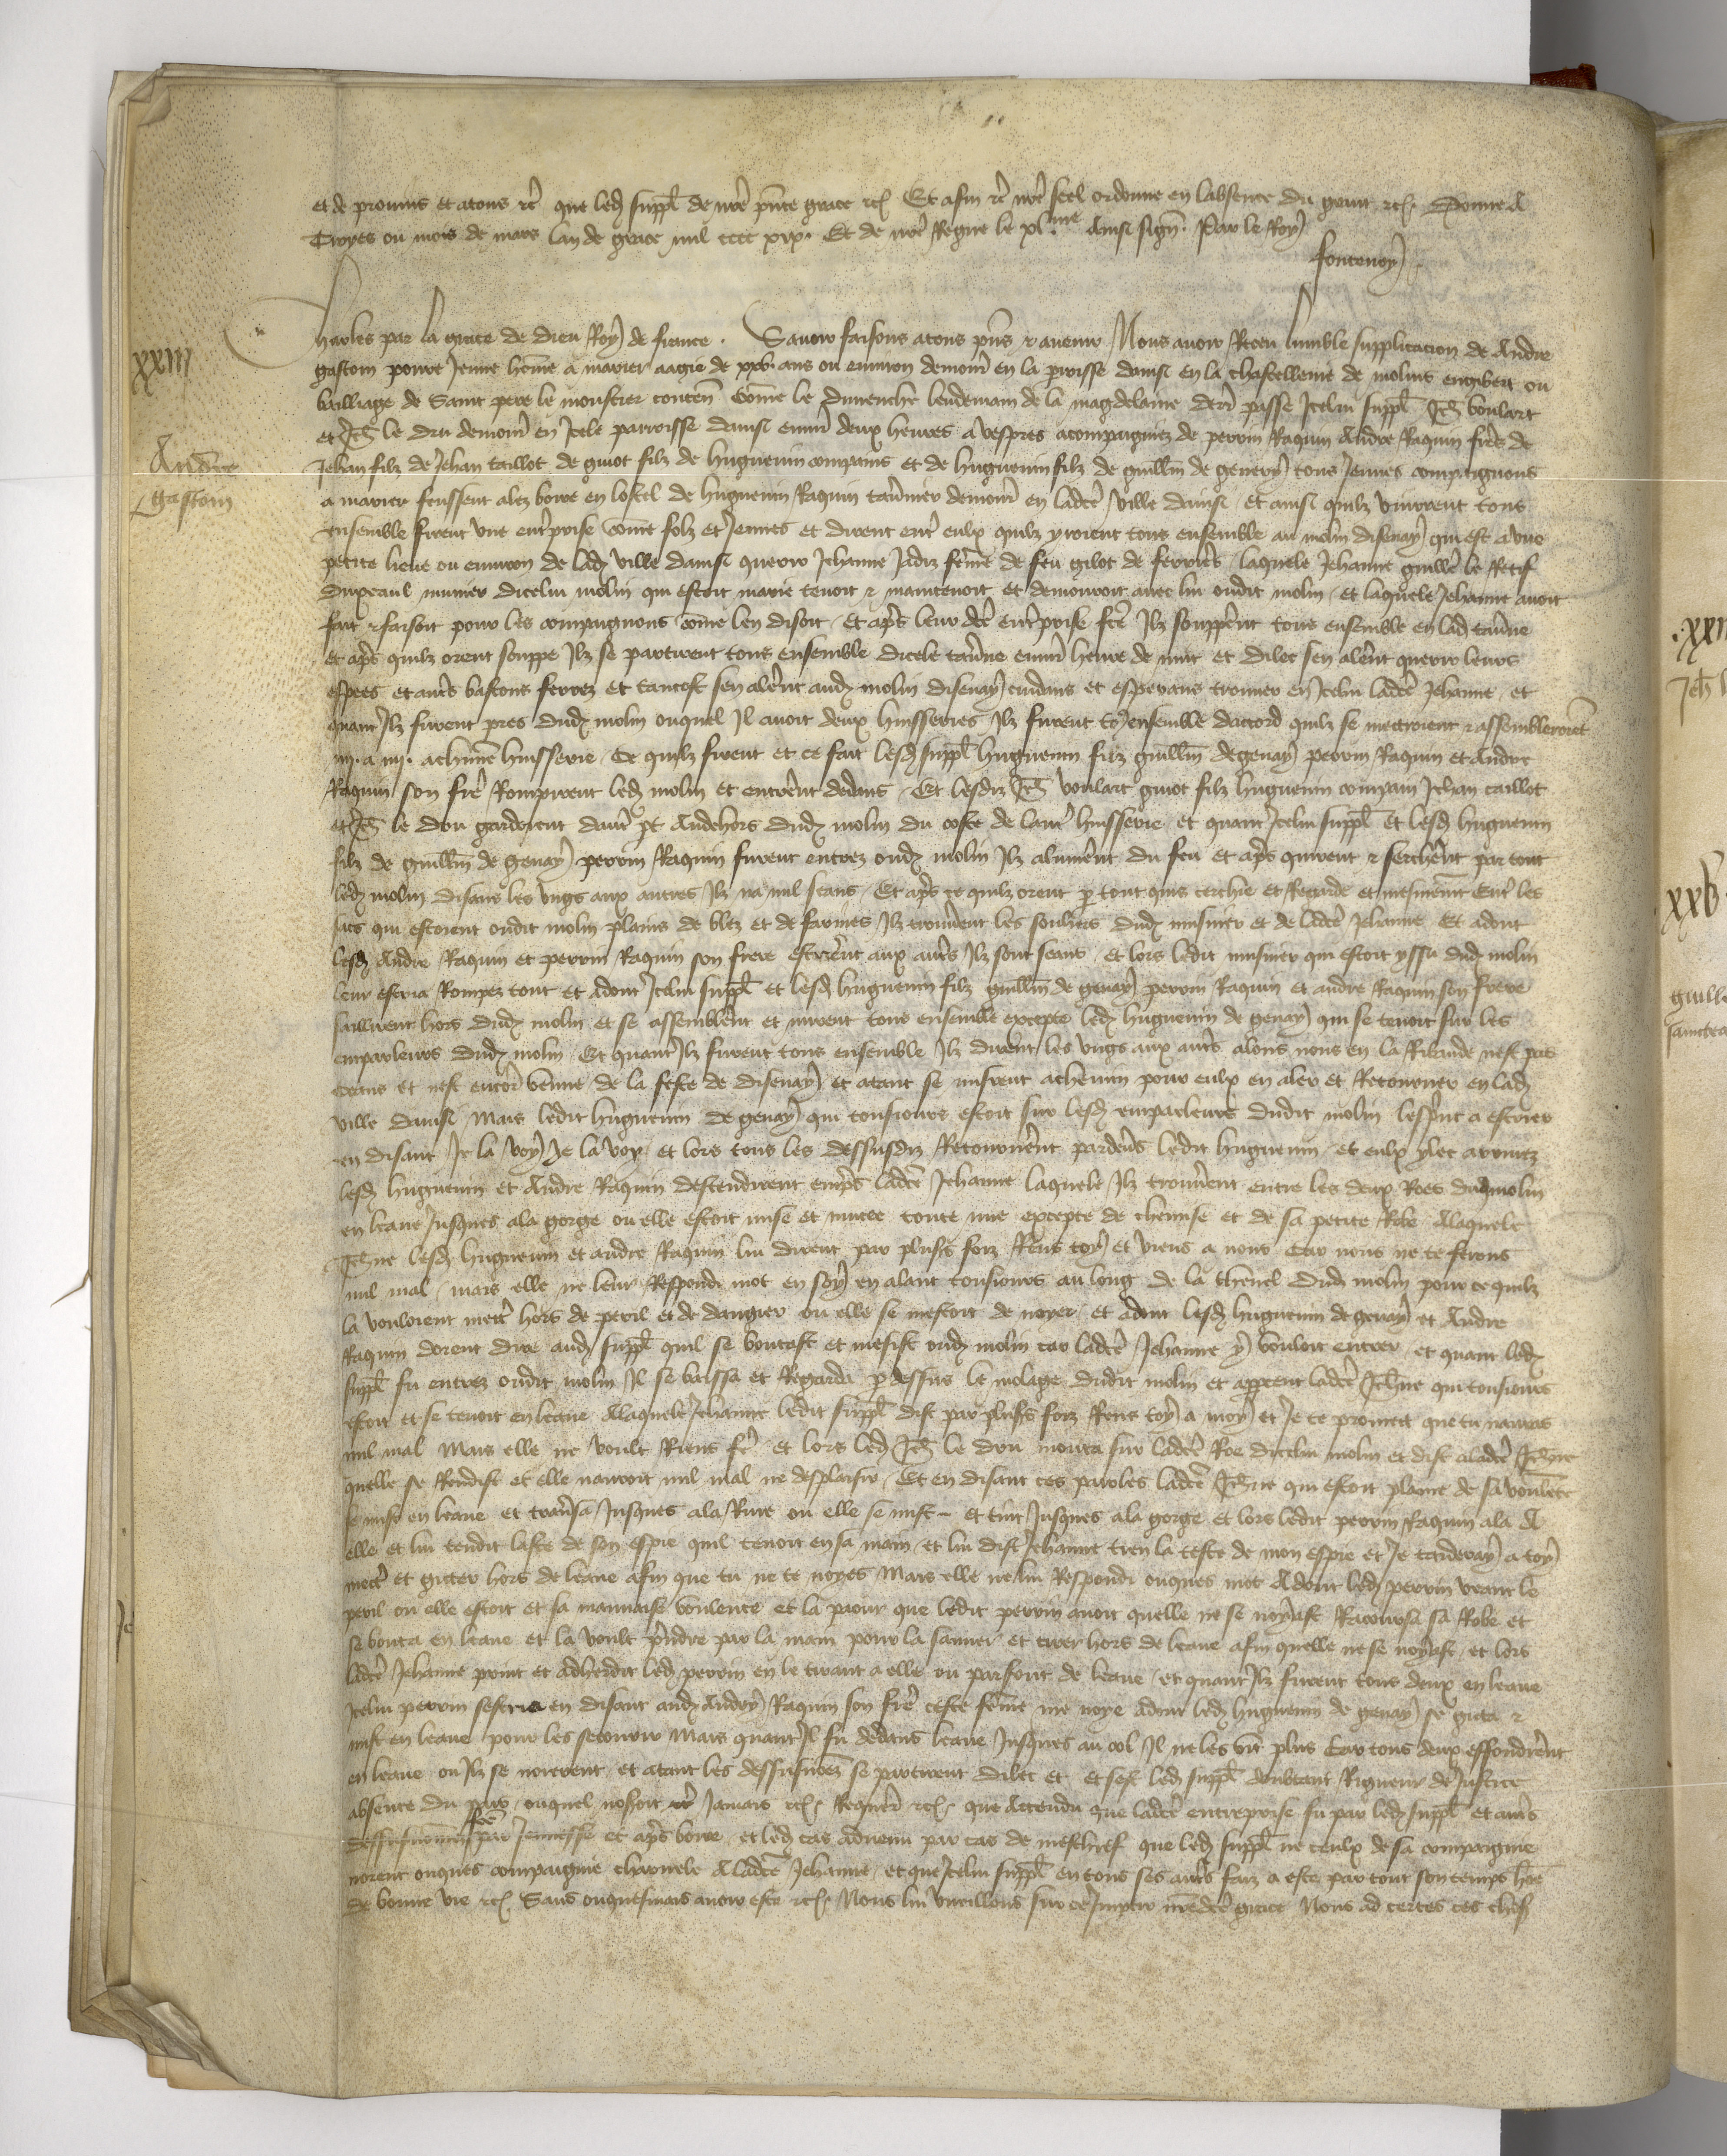 et de prouins et atous rc̄ que led suppl de nr̄e pn̄te grace rc̄ Et afin rc̄ nr̄e seel ordonne en labsence du grant rc̄ Donne A
Troyes ou mois de mars lan de grace mil cccc xix. Et de nr̄e Regne le xl.me Ainsi sign̄. Par le Roy
fontenoy
xxiii
harles par la grace de dieu Roy de france. Sauoir faisons atous pn̄s & auenir Nous auoir Receu humble supplicacion de Andre
Andre
gastom
gastom poure Jeune hōme a marier aagie de xxv. ans ou enuiron demour̄ en la parroisse dainsi en la chastellenie de molins engibert ou
bailliage de Saint pere le monstier conten̄ Cōme le dimenche lendemain de la magdelaine derr̄ passe Icelui suppl Jeh̄ boulart
et Jeh̄ le dru demour̄ en Icele parroisse dainsi enuir̄ deux heures a vespres acompaignez de perrin Raquin Andre Raquin frēs de
Jehan filz de Jehan taillot de guiot filz de huguenin compains et de huguenin filz de guill̄m de genery tous Jeunes compaignons
a marier feussent alez boire en lostel de huguenin Raquin tau̅nier demour̄ en ladcē ville dainsi Et ainsi quilz buuoient tous
ensemble firent vne entr̄prise cōme folz et Jeunes et dirent entr̄ eulx quilz yroient tous ensemble au molin disenay qui est a vne
petite lieue ou enuiron de lad ville dainsi querir Jehanne Jadiz fēme de feu gilot de ferrieres laquele Jehanne le Retif
munier dicelui molin qui estoit marie tenoit & maintenoit et demouroit auec lui oudit molin et laquele Jehanne auoit
fait & faisoit pour les compaignons cōme len disoit Et apr̄s leur dcē entr̄prise fcē Ilz soupper̄ent tous ensemble en lad tau̅ne
et apr̄s quilz orent souppe Ilz se partirent tous ensemble dicele tau̅ne enuir̄ heure de nuit et dilec sen aler̄ent querir leurs
espees et autr̄s bastons ferrez et tantost sen aler̄ent aud molin disenay cuidans et esperans trouuer en Icelui ladcē Jehanne et
quant Ilz furent pres dud molin ouquel Il auoit deux huisseries Ilz furent to ensemble daccord quilz se mectroient & assembleroient
iiii. a iiii. achūne huisserie Ce quilz firent et ce fait lesd suppl huguenin filz guill̄m de genay perrin Raquin et Andre
Raquin son frē Rompirent led molin et entrer̄ent dedans Et lesdiz Jeh̄ boulart guiot filz huguenin compain Jehan taillot
et Jeh̄ le dru garderent dautr̄ pt Audehors dud molin du coste de lautr̄ huisserie et quant Icelui suppl et lesd huguenin
filz de guill̄m de genay perrin Raquin furent entrez oud molin Ilz alumer̄ent du feu et apr̄s quirent & sercher̄ent par tout
led molin disans les vngs aux autres Ilz na nul ceans Et apr̄s ce quilz orent p tout quis cerchie et Regarde et mesmemēt Entr̄ les
sacs qui estoient oudit molin plains de blez et de farines Ilz trouuer̄ent les soulliers dud musnier et de ladcē Jehanne Et adont
lesd Andre Raquin et perrin Raquin son frere escrier̄ent aux autr̄s Ilz sont ceans et lors ledit musnier qui estoit yssu dud molin
leur escria Rompez tout et adont Icelui suppl et lesd huguenin filz guill̄m de genay perrin Raquin et andre Raquin son frere
saillirent hors dud molin et se assembler̄ent et mirent tous ensemble excepte led huguenin de genay qui se tenoit sur les
emparleurs dud molin Et quant Ilz furent tous ensemble Ilz dirent les vngs aux autr̄s alons nous en la Ribaude nest pas
ceans et nest encor̄ venue de la feste de disenay et atant se misrent achemin pour eulx en aler et Retourner en lad
ville dainsi Mais ledit huguenin de genay qui tousiours estoit sur lesd emparleurs dudit molin lesprint a escrier
en disant Je la voy Je la voy et lors tous les dessusdiz Retournerēt pardeu̅s ledit huguenin et eulx ylec arriuez
lesd huguenin et Andre Raquin descendirent empr̄s ladcē Jehanne laquele Ilz trouuerent entre les deux Roes dud molin
en leaue Jusques ala gorge ou elle estoit mise et mucee toute nue excepte de chemise et de sa petite Robe Alaquele
Jehn̄e lesd huguenin et andre Raquin lui dirent par plusrs foiz Rens toy et viens a nous Car nous ne te ferons
nul mal mais elle ne leur Respondi mot en soy en alant tousiours au long de la chenel dud molin pour ce quilz
la vouloient mectr̄ hors de peril et de dangier ou elle se mectoit de noyer et adont lesd huguenin de genay et Andre
Raquin dorent dire aud suppl quil se boutast et mesist oud molin car ladcē Jehanne y vouloit entrer et quant led
suppl fu entrez oudit molin Il se baissa et Regarda p dessus le molage dudit molin et apperceut ladcē Jehn̄e qui tousiours
estoit et se tenoit en leaue Alaquele Jehanne ledit suppl dist par plusrs foiz Rens toy a moy et Je te promet que tu nauras
nul mal Mais elle ne voult Riens fr̄e et lors led Jeh̄ le dru monta sur ladcē Roe dicelui molin et dist a ladcē Jehn̄e
quelle se Rendist et elle nauroit nul mal ne desplaisir Et en disant ces paroles ladcē Jehn̄e qui estoit plaine de sa voulētē
se mist en leaue et trauersa Jusques ala Riue ou elle se mist et tint Jusques ala gorge et lors ledit perrin Raquin ala A
elle et lui tendit laste de son espie quil tenoit en sa main et lui dist Jehanne tien la teste de mon espie et Je taideray a toy
mectr̄ et gicter hors de leaue afin que tu ne te noyes Mais elle ne lui Respondi onques mot Adont led perrin veant le
peril ou elle estoit et sa mauuaise voulente et la paour que ledit perrin auoit quelle ne se noyast Racoursa sa Robe et
se bouta en leaue et la voult prēdre par la main pour la sauuer et tirer hors de leaue afin quelle ne se noyast et lors
ladcē Jehanne print et adherdit led perrin en le tirant a elle ou parfont de leaue et quant Ilz furent tous deux en leaue
Icelui perrin sescria en disant aud Andry Raquin son frē ceste fēme me noye adont led huguenin de genay se gicta &
mist en leaue pour les secourir Mais quant Il fu dedans leaue Jusques au col Il ne les vit plus Car tous deux effondrerēt
en leaue ou Ilz se noierent et atant les dessusnōez se partirent dilec et et sest led suppl doubtant Rigueur de Justice
absente du pais ouquel nosoit rc̄ Jamais rc̄ Requer̄ rc̄ que Attendu que ladcē entreprise fu par led suppl et autr̄s
dessusnōmez fcē par Jeunesse et apr̄s boire et led cas aduenu par cas de meschief que led suppl ne ceulx de sa compaignie
norent onques compaignie charnele A ladcē Jehanne et que Icelui suppl en tous ses autr̄s faiz a este par tout son temps hōe
de bonne vie rc̄ Sans onquesmais auoir este rc̄ Nous lui vueillons sur ce Impartir nr̄edcē grace Nous ad certes ces chos